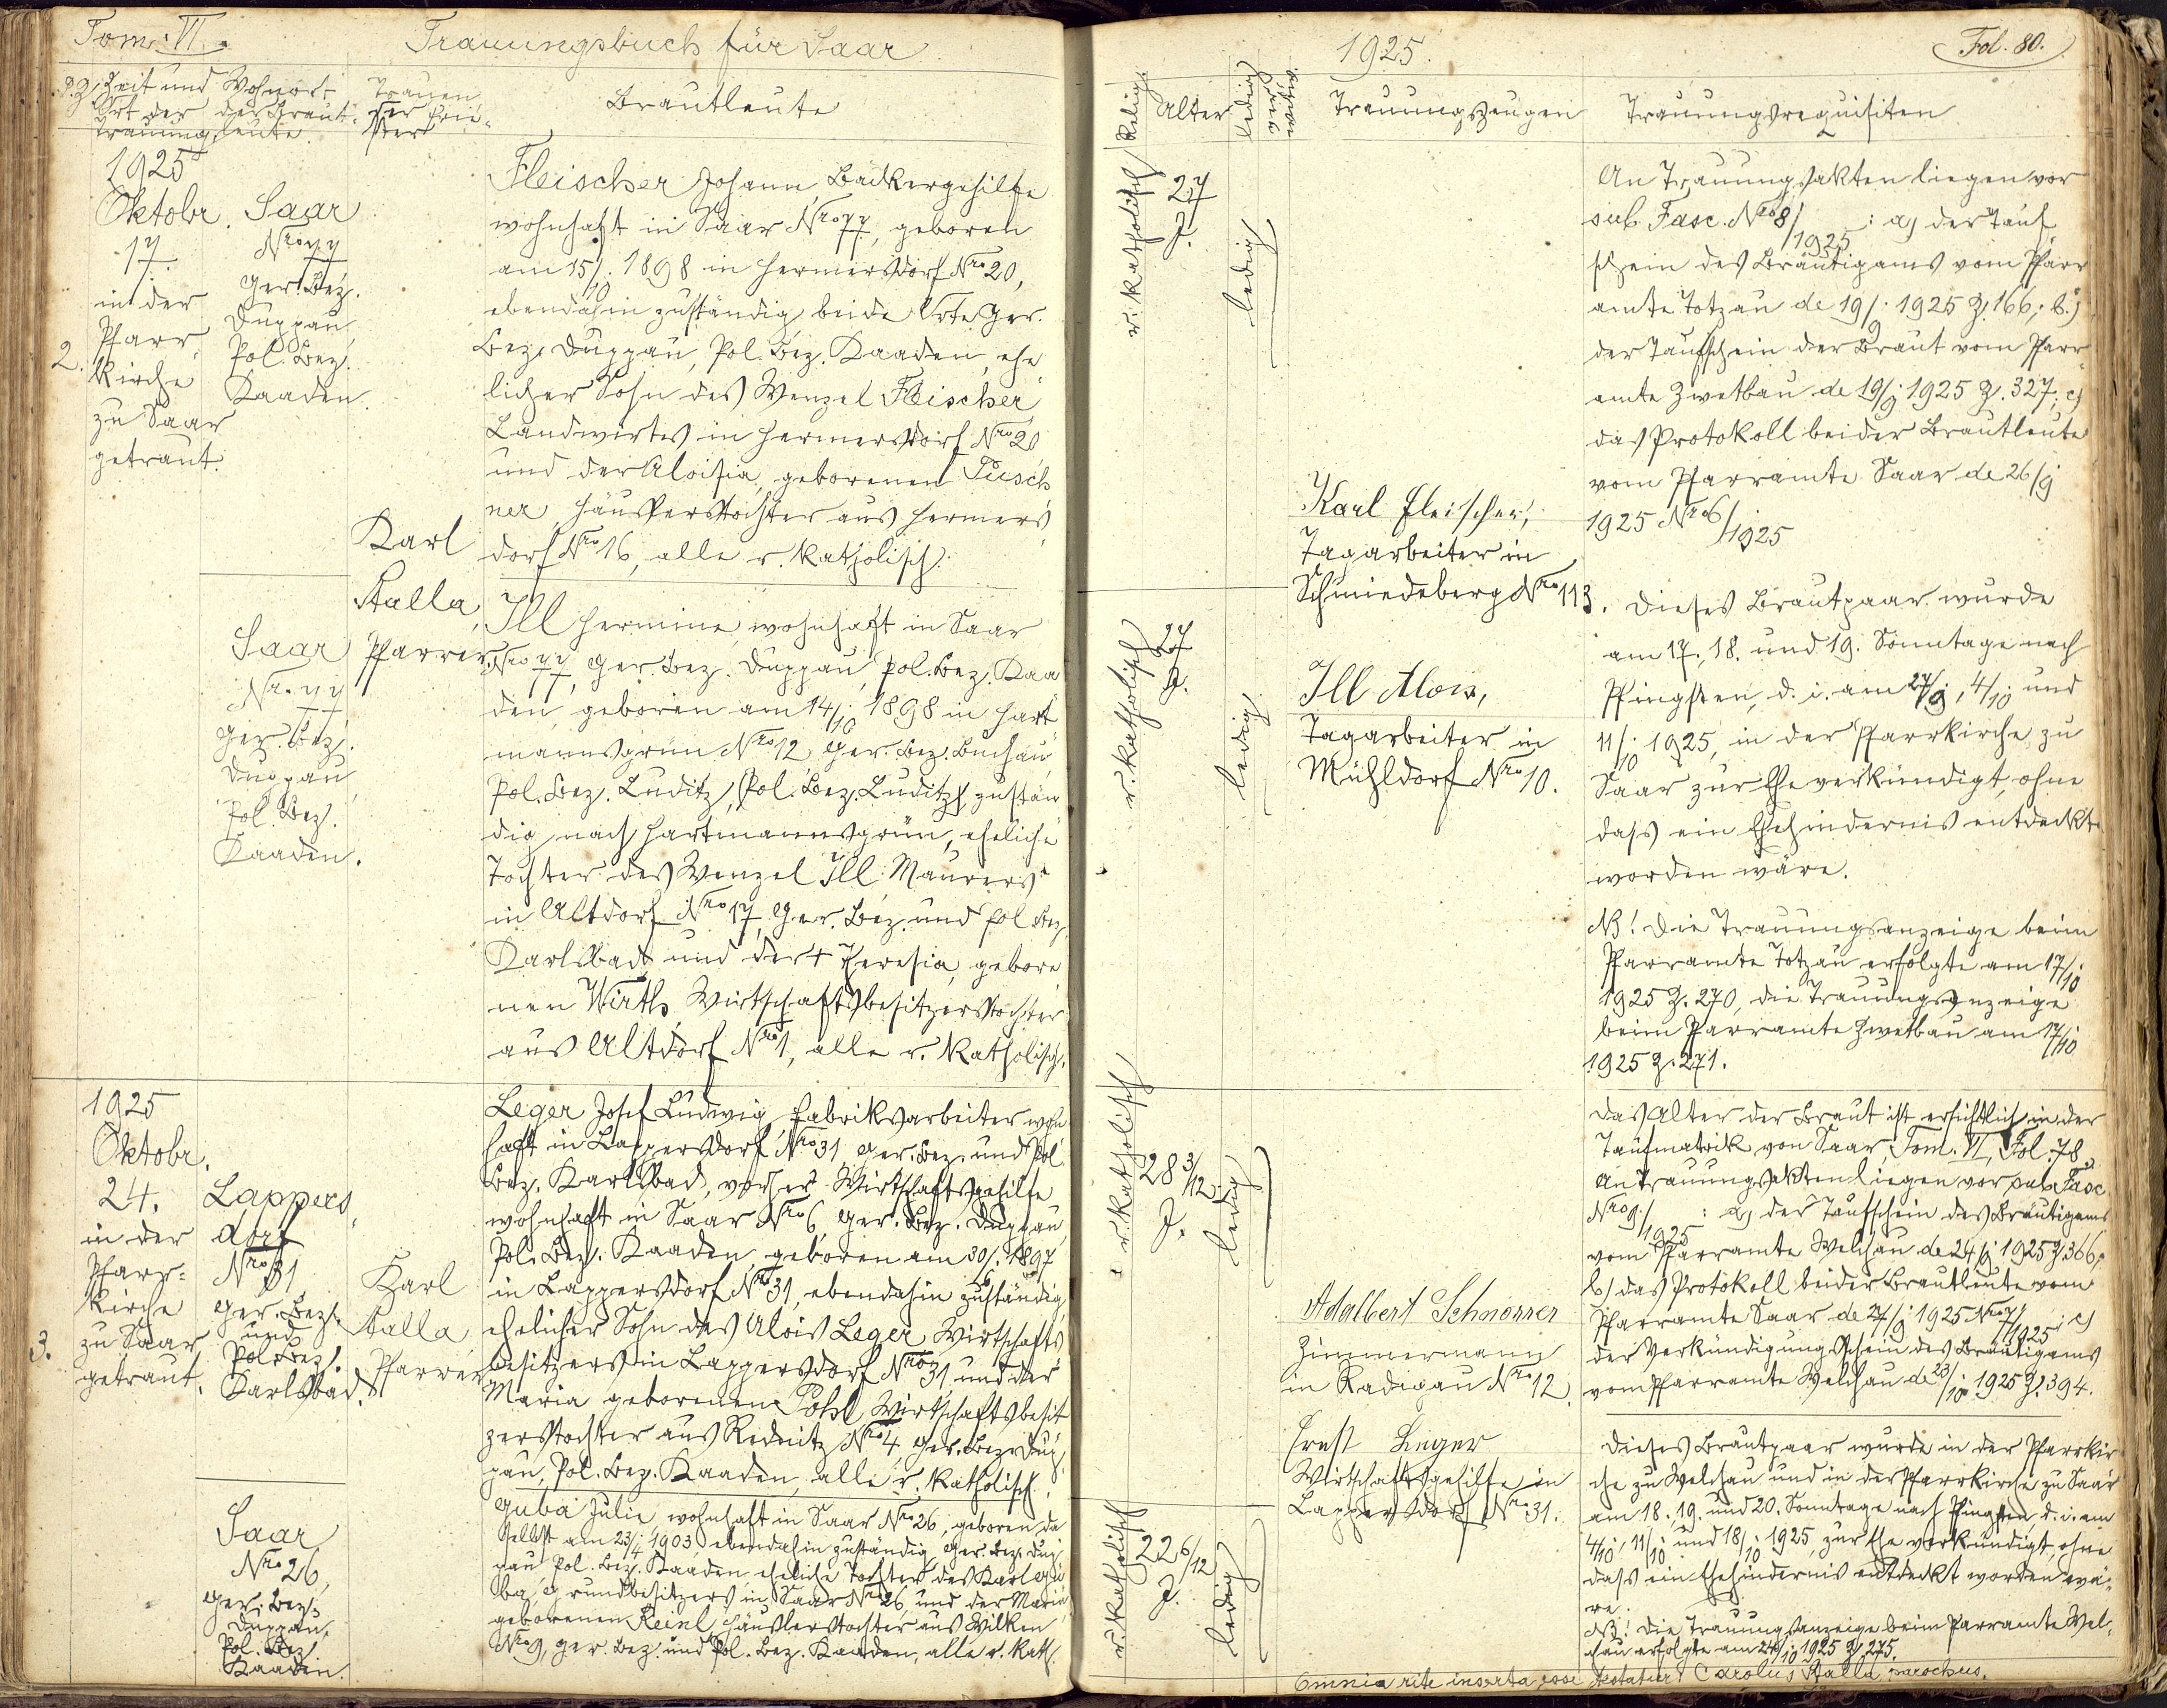 Tom. VI.
Trauungsbuch für Saar
P.Z. Zeit und Ort der Trauung
Wohnort der Brautleute
Trauender Priester
Brautleute
1925
Oktobr.
17.
in der
Pfarr
kirche
zu Saar
getraut.
2.
Saar
Nro 77
Ger. Bez.
Duppau,
Pol. Bez.
Kaaden.
Karl
Stalla,
Pfarrer
Fleischer Johann Bäckergehilfe
wohnhaft in Saar Nro 77, geboren
am 15/10. 1898 in Hermersdorf Nro 20,
ebendahin zuständig beide Orte Ger.
Bez. Duppau, Pol. Bez. Kaaden, ehe
licher Sohn des Wenzel Fleischer
Landwirtes in Hermersdorf Nro 20
und der Aloisia, geborenen Pusch
ner, Häuslerstochter aus Hermers
dorf Nro 16, alle r. katholisch.
Saar
Nr. 77
Ger. Bez.
Duppau,
Pol. Bez.
Kaaden.
Ill Hermine, wohnhaft in Saar
Nro 77, Ger. Bez. Duppau, Pol. Bez. Kaa
den, geboren am 14/10. 1898 in Hart
mannsgrün Nro 12 Ger. Bez. Buchau,
Pol. Bez. Luditz, (Pol. Bez. Luditz) zustän
dig nach Hartmannsgrün, eheliche
Tochter des Wenzel Ill Maurers
in Altdorf Nro 17, Ger. Bez. und Pol. Bez.
Karlsbad, und der + Theresia, gebore
nen Wirth, Wirtschaftsbesitzerstochter
aus Altdorf Nro 1, alle r. katholisch.
1925
Oktobr.
24.
in der
Pfarr-
kirche
zu Saar
getraut.
3.
Lappers
dorf
Nro 31
Ger. Bez.
und
Pol. Bez.
Karlsbad.
Karl
Stalla
Pfarrer
Leger Josef Ludwig, Fabriksarbeiter wohn
haft in Lappersdorf Nro 31, Ger. Bez. und Pol.
Bez. Karlsbad, vorher Wirtschaftsgehilfe
wohnhaft in Saar Nro 6, Ger. Bez. Duppau,
Pol. Bez. Kaaden, geboren am 30/. 1897
in Lappersdorf Nro 31, ebendahin zuständig,
ehelicher Sohn des Alois Leger Wirtschafts
besitzers in Lappersdorf Nro 31 und der
Maria geborenen Pohl Wirtschaftsbesit
zerstochter aus Rednitz Nro 4 Ger. Bez. Dup
pau, Pol. Bez. Kaaden, alle r. katholisch.
Saar
Nro 26,
Ger. Bez.
Duppau,
Pol. Bez.
Kaaden.
Guba Julie wohnhaft in Saar Nro 26, geboren da
selbst am 23/4. 1903, ebendahin zuständig, Ger. Bez. Dup
pau Pol. Bez. Kaaden eheliche Tochter des Karl Gu
ba, Grundbesitzers in Saar Nro 26, und der Maria
geborenen Reinl, Häuslerstochter aus Wilken
Nro 9, Ger. Bez. und Pol. Bez. Kaaden, alle r. kath.
1925.
Fol. 80.
Relig.
Alter
ledig
verwitw.
Trauungszeugen
Trauungsrequisiten
r. katholisch
27
J.
ledig
Karl Fleischer,
Tagarbeiter in
Schmiedeberg Nro 113.
r. katholisch
27
J.
ledig
Ill Alois,
Tagarbeiter in
Mühldorf Nro 10.
An Trauungsakten liegen vor
sub. Fasc. Nro 8/1925: a) der Tauf
schein des Bräutigams vom Pfarr
amte Totzau de 19/9. 1925 Z. 166; b.)
der Taufschein der Braut vom Pfarr
amte Zwetbau de 19/9. 1925 Z. 327; c)
das Protokoll beider Brautleute
vom Pfarramte Saar de 26/9
1925 Nro 6/1925
Dieses Brautpaar wurde
am 17., 18. und 19. Sonntage nach
Pfingsten, d. i. am 27/9., 4/10. und
11/10. 1925, in der Pfarrkirche zu
Saar zur Ehe verkündigt, ohne
dass ein Ehehindernis entdeckt
worden wäre.
NB! Die Trauungsanzeige beim
Pfarramte Totzau erfolgte am 17/10
1925 Z. 270, die Trauungsanzeige
beim Pfarramte Zwetbau am 17/10
1925 Z. 271.
r. katholisch
28 3/12
J.
ledig
Adalbert Schmörrer
Zimmermann
in Radigau Nro 12.
Ernst Leger
Wirtschaftsgehilfe in
Lappersdorf Nro 31.
r. katholisch
22 6/12
J.
ledig
Das Alter der Braut ist ersichtlich in der
Taufmatrik von Saar, Tom. VI, Fol. 78.
An Trauungsakten liegen vor sub. Fasc
Nro 9/1925: a) der Taufschein des Bräutigams
vom Pfarramte Welchau de 24/9 1925 Z. 366;
b) das Protokoll beider Brautleute vom
Pfarramte Saar de 27/9 1925 Nro 7/1925; c)
der Verkündigungsschein des Bräutigams
vom Pfarramte Welchau de 23/10 1925 Z. 394.
Dieses Brautpaar wurde in der Pfarrkir
che zu Welchau und in der Pfarrkirche zu Saar
am 18. 19. und 20. Sonntage nach Pfingsten, d. i. am
4/10., 11/10. und 18/10. 1925, zur Ehe verkündigt, ohne
dass ein Ehehindernis entdeckt worden wä-
re.
NB! Die Trauungsanzeige beim Pfarramte Wel-
chau erfolgte am 24/10 1925 Z. 275.
Omnia rite inserta esse testatur Carolus Stalla parochus.